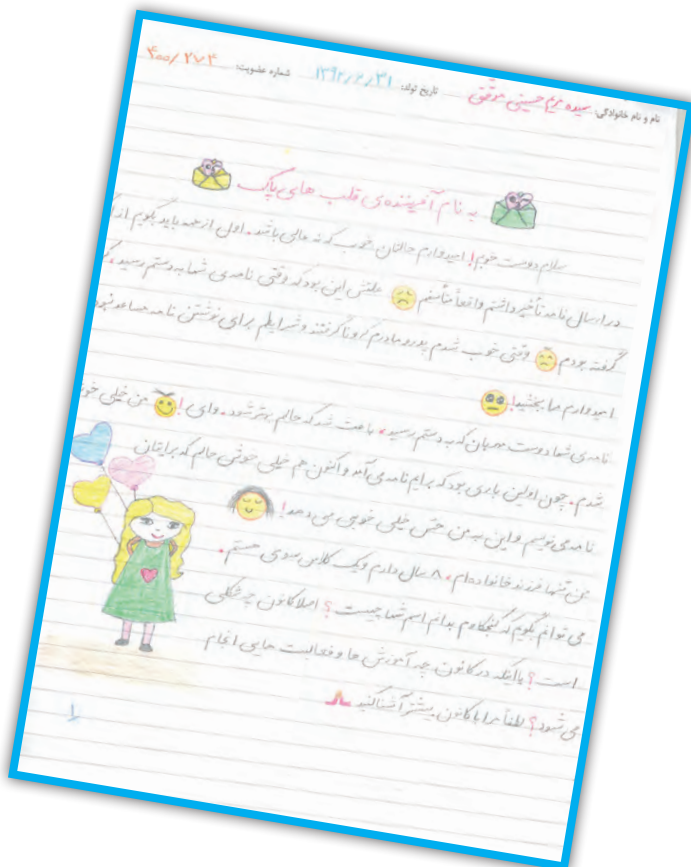 نام و نام خانوادگی: سیده مریم حسینی موفقی تاریخ تولد: ۱۳۹۲/۲/۳۱ شماره عضویت: ۴۰۰/۲۷۴
به نام آفریننده‌ی قلب های پاک
سلام دوست خوبم! امیدوارم حالتان خوب که نه عالی باشد. اول از همه باید بگویم از
در ارسال نامه تأخیر داشتم واقعاً متأسفم علتش این بود که وقتی نامه‌ی شما به دستم رسید،
گرفته بودم وقتی خوب شدم پدر و مادرم کرونا گرفتند و شرایطم برای نوشتن نامه مساعد نبود
امیدوارم ما بخشید!
نامه‌ی شما دوست مهربان که به دستم رسید، باعث شد که حالم بهتر شود. وای! من خیلی
شدم. چون اولین باری بود که برایم نامه‌ی آمد و اکنون هم خیلی خوش حالم که برایتان
نامه می نویسم و این به من حس خیلی خوبی می دهد!
من تنها فرزند خانواده‌ام، ۸ سال دارم و یک کلاس سومی هستم.
می توانم بگویم که کنجکاوم بدانم اسم شما چیست؟ اصلا کانون چه شکلی
است؟ یا اینکه در کانون چه آموزش ها و فعالیت هایی انجام
می شود؟ لطفاً مرا با کانون بیشتر آشنا کنید
۱